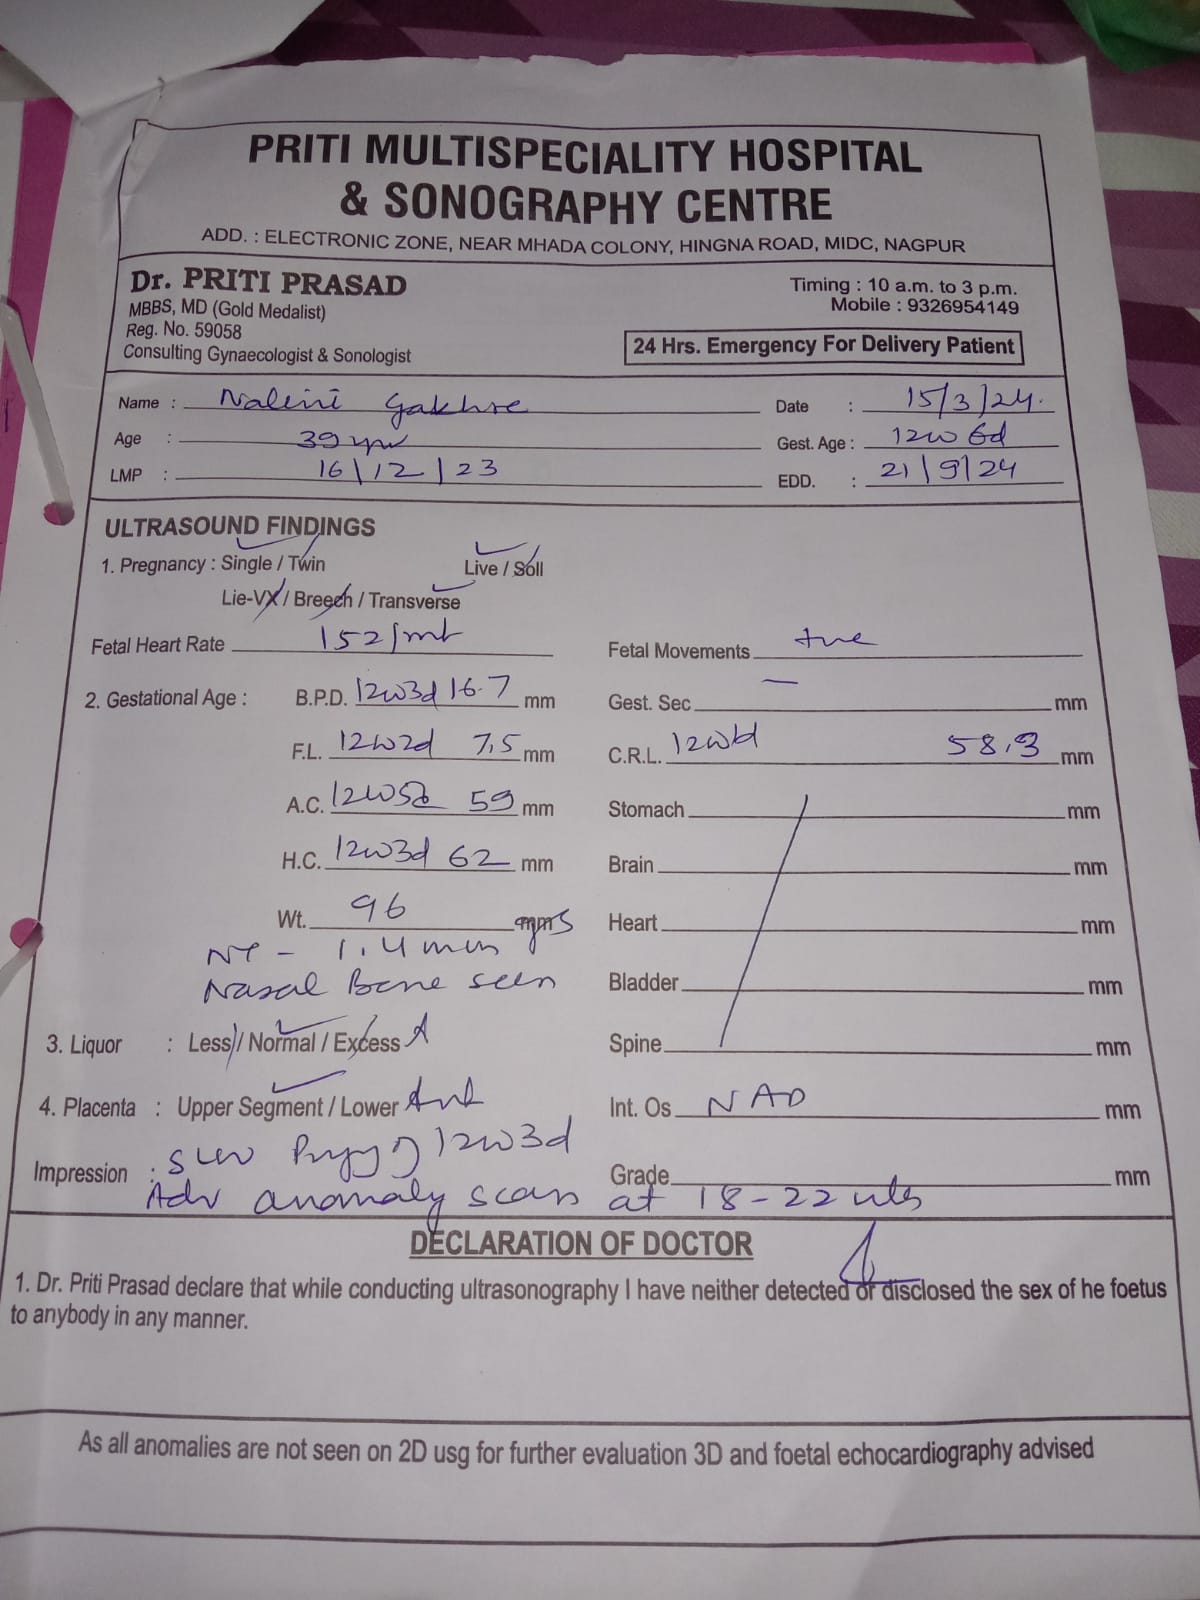 PRITI MULTISPECIALITY HOSPITAL
& SONOGRAPHY CENTRE
ADD. : ELECTRONIC ZONE, NEAR MHADA COLONY, HINGNA ROAD, MIDC, NAGPUR
Dr. PRITI PRASAD
MBBS, MD (Gold Medalist)
Reg. No. 59058
Consulting Gynaecologist & Sonologist
Timing : 10 a.m. to 3 p.m.
Mobile : 9326954149
24 Hrs. Emergency For Delivery Patient
Name : Nalini Gakhre Date : 15/3/24.
Age : 39 Gest. Age : 12w 6d
LMP : 16/12/23 EDD. : 21/9/24
ULTRASOUND FINDINGS
1. Pregnancy : Single / Twin Live / Soll
Lie-VX / Breech / Transverse
Fetal Heart Rate 152/mt Fetal Movements +ve
2. Gestational Age : B.P.D. 12w3d 16.7 mm Gest. Sec — mm
F.L. 12w2d 7.5 mm C.R.L. 58.3 mm
A.C. 59 mm Stomach mm
H.C. 12w3d 62 mm Brain mm
Wt. 96 gms Heart mm
NT - 1.4 mm
Nasal Bone seen Bladder mm
3. Liquor : Less / Normal / Excess A Spine mm
4. Placenta : Upper Segment / Lower Ant Int. Os NAD mm
Impression : 12w3d Grade mm
Adv anomaly scan at 18-22 wks
DECLARATION OF DOCTOR
1. Dr. Priti Prasad declare that while conducting ultrasonography I have neither detected or disclosed the sex of he foetus
to anybody in any manner.
As all anomalies are not seen on 2D usg for further evaluation 3D and foetal echocardiography advised